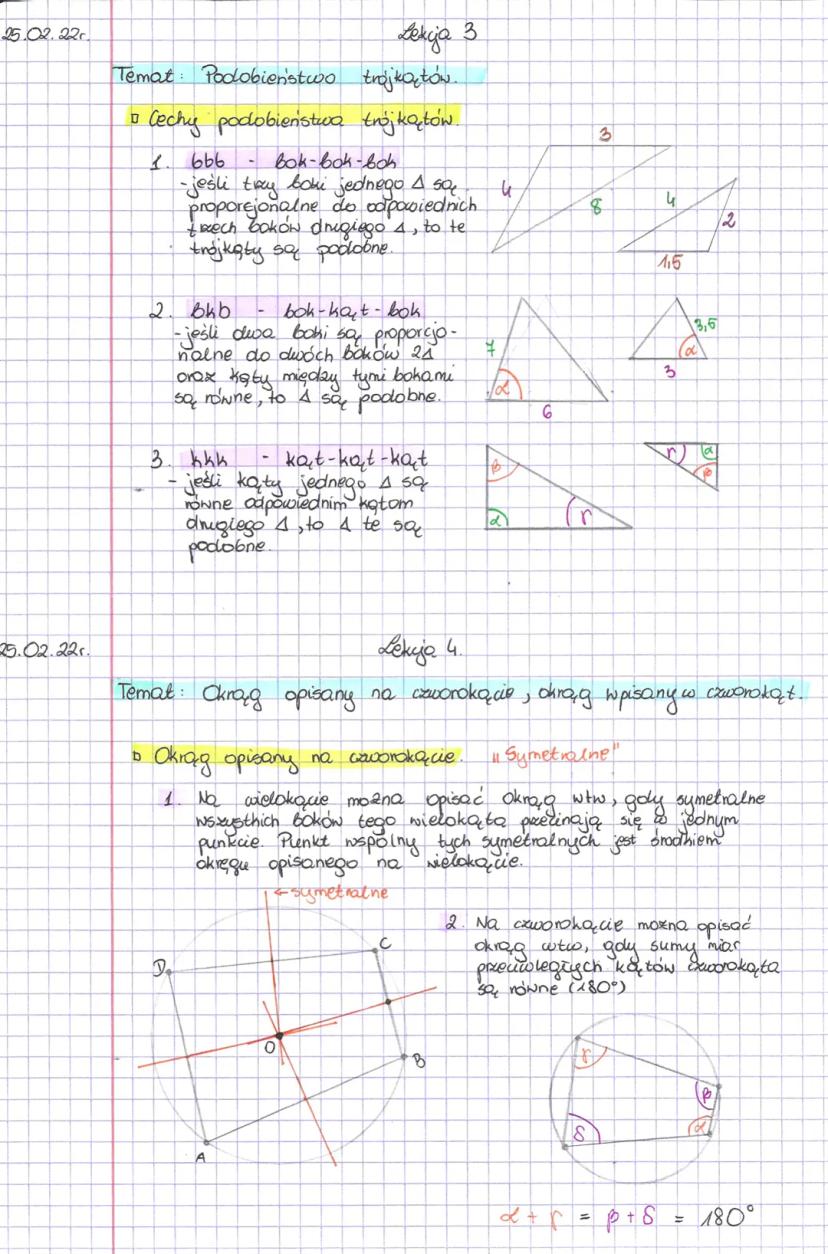 25.02.22r.
Lekcja 3
Temat: Podobieństwo trójkątów.
Cechy podobieństwa trójkątów.
1. bbb - bok-bok-bok
- jeśli trzy boki jednego Δ są
proporcjonalne do odpowiednich
trzech boków drugiego Δ, to te
trójkąty są podobne.
3
4
8
4
2
1,5
2. bkb - bok-kąt-bok
- jeśli dwa boki są proporcjo-
nalne do dwóch boków 2Δ
oraz kąty między tymi bokami
są równe, to Δ są podobne.
7
α
6
3,5
α
3
3. kkk - kąt-kąt-kąt
- jeśli kąty jednego Δ są
równe odpowiednim kątom
drugiego Δ, to Δ te są
podobne.
β
α
γ
γ
α
β
25.02.22r.
Lekcja 4.
Temat: Okrąg opisany na czworokącie, okrąg wpisany w czworokąt.
Okrąg opisany na czworokącie. "Symetralne"
1. Na wielokącie można opisać okrąg wtw, gdy symetralne
wszystkich boków tego wielokąta przecinają się w jednym
punkcie. Punkt wspólny tych symetralnych jest środkiem
okręgu opisanego na wielokącie.
← symetralne
D
C
O
B
A
2. Na czworokącie można opisać
okrąg wtw, gdy sumy miar
przeciwległych kątów czworokąta
są równe (180°)
γ
β
δ
α
α + γ = β + δ = 180°